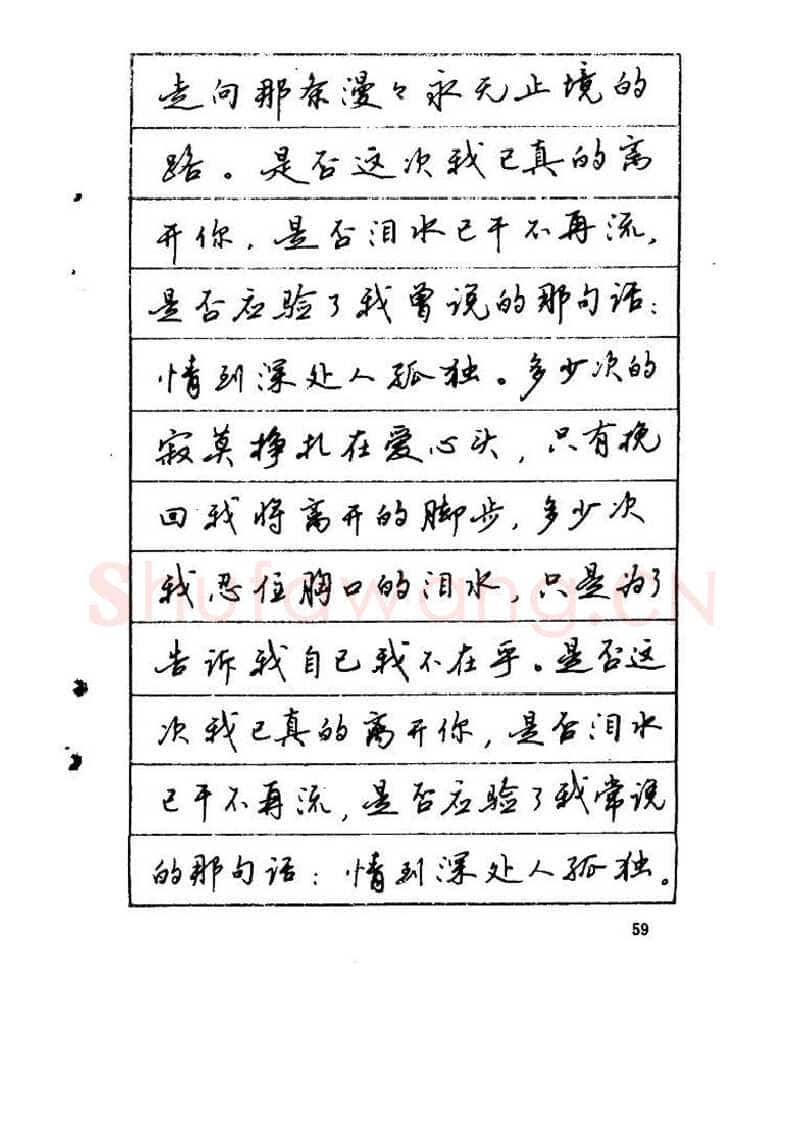 走向那条漫々永无止境的
路。是否这次我已真的离
开你，是否泪水已干不再流，
是否应验了我曾说的那句话：
情到深处人孤独。多少次的
寂莫挣扎在爱心头，只有挽
回我将离开的脚步，多少次
我忍住胸口的泪水，只是为了
告诉我自己我不在乎。是否这
次我已真的离开你，是否泪水
已干不再流，是否应验了我常说
的那句话：情到深处人孤独。
Shufawang.CN
59